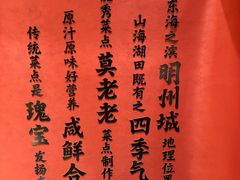 东海之滨明州城地理位置
山海湖田既有之四季气
优秀菜点莫老老菜点制作
原汁原味好营养咸鲜合
传统菜点是瑰宝发扬